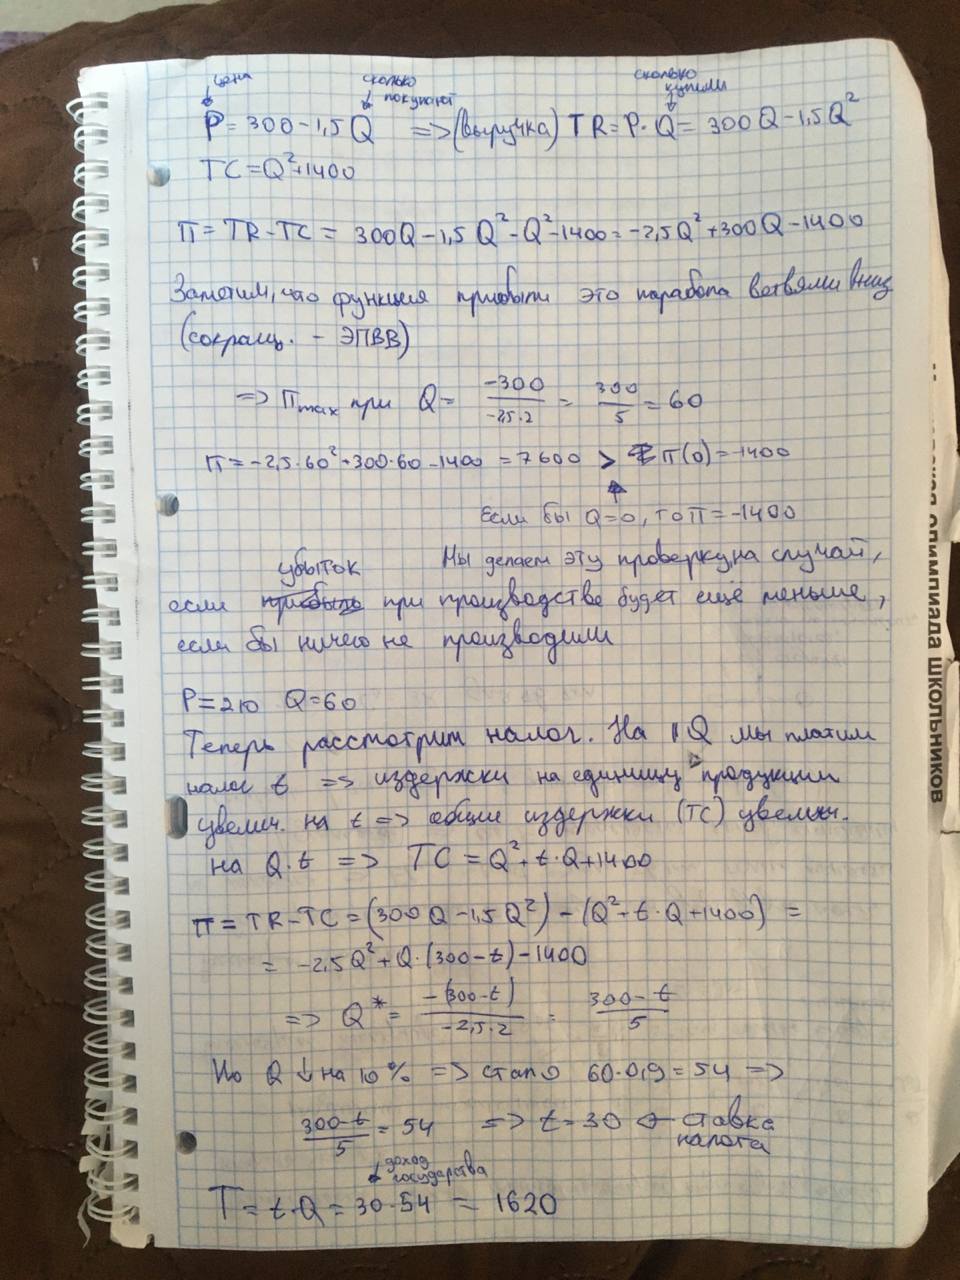 цена
сколько
покупают
сколько
купили
P = 300 - 1,5Q => (выручка) TR = P·Q = 300Q - 1,5Q²
TC = Q² + 1400
П = TR - TC = 300Q - 1,5Q² - Q² - 1400 = -2,5Q² + 300Q - 1400
Заметим, что функция прибыли это парабола ветвями вниз
(сокращ. - ЭПВВ)
=> Пmax при Q = -300/-2,5·2 = 300/5 = 60
П = -2,5·60² + 300·60 - 1400 = 7600 > П(0) = -1400
Если бы Q=0, то П = -1400
Мы делаем эту проверку, на случай,
убыток
если прибыль при производстве будет ещё меньше,
если бы ничего не производили
P = 210 Q = 60
Теперь рассмотрим налог. На 1Q мы платим
налог t => издержки на единицу продукции
увелич. на t => общие издержки (TC) увелич.
на Q·t => TC = Q² + t·Q + 1400
П = TR - TC = (300Q - 1,5Q²) - (Q² + t·Q + 1400) =
= -2,5Q² + Q·(300 - t) - 1400
=> Q* = -(300-t)/-2,5·2 = 300-t/5
Но Q ↓ на 10% => стало 60·0,9 = 54 =>
300-t/5 = 54 => t = 30 ← ставка
налога
доход
государства
T = t·Q = 30·54 = 1620
олимпиада школьников